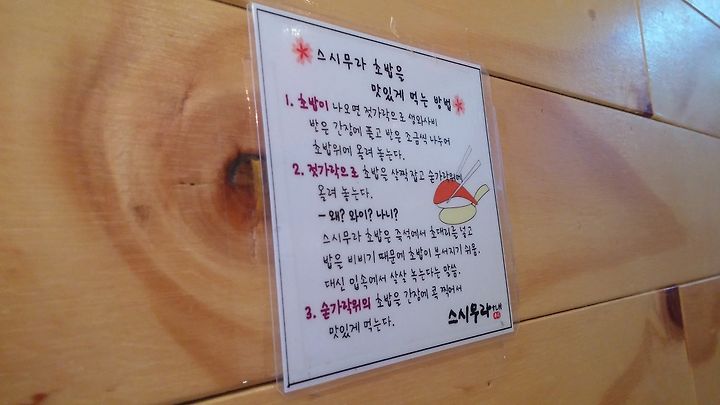 스시무라 초밥을
맛있게 먹는 방법
1. 초밥이 나오면 젓가락으로 생와사비
반은 간장에 풀고 반은 조금씩 나누어
초밥위에 올려 놓는다.
2. 젓가락으로 초밥을 살짝 잡고 숟가락위에
올려 놓는다.
- 왜? 와이? 나니?
스시무라 초밥은 즉석에서 초대리를 넣고
밥을 비비기 때문에 초밥이 부서지기 쉬움.
대신 입속에서 살살 녹는다는 말씀.
3. 숟가락위의 초밥을 간장에 콕 찍어서
맛있게 먹는다.
스시무라